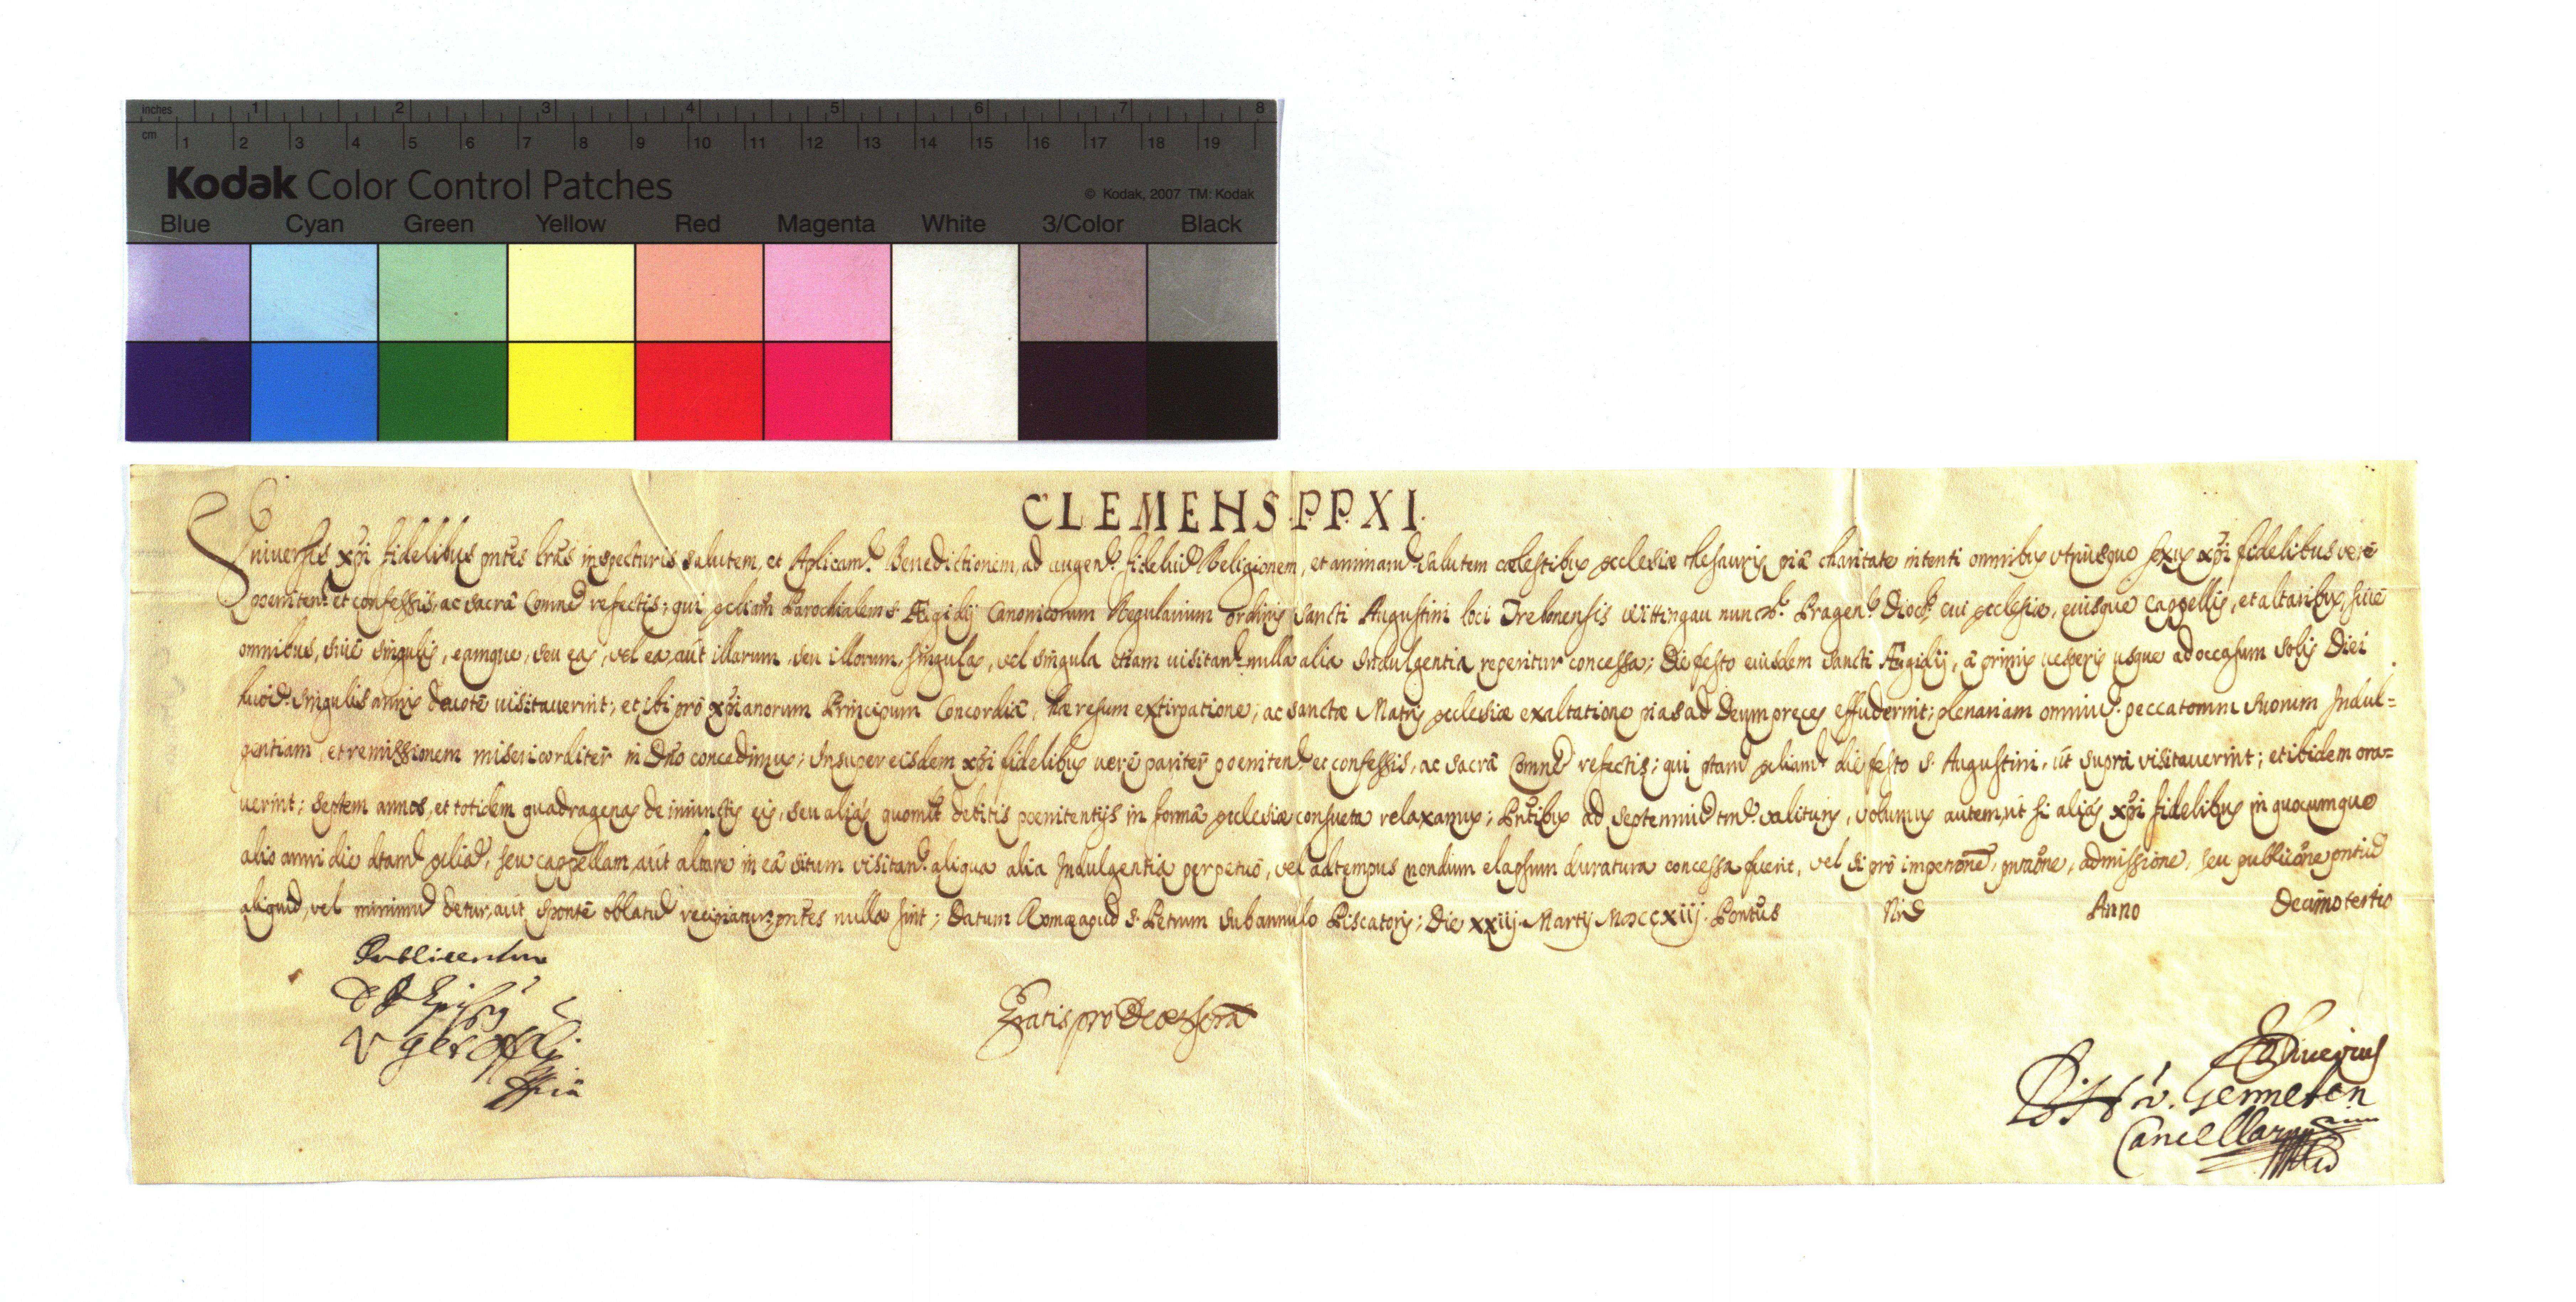 inches 1 2 3 4 5 6 7 8
cm 1 2 3 4 5 6 7 8 9 10 11 12 13 14 15 16 17 18 19
Kodak Color Control Patches
© Kodak, 2007 TM: Kodak
Blue Cyan Green Yellow Red Magenta White 3/Color Black
CLEMENS.P.P.XI.
Universis xp̄i fidelibus pn̄tes lrās inspecturis salutem, et Aplicam. Benedictionem, ad augen. fideliū Religionem, et animarū salutem cælestibus ecclesiæ thesauris piâ charitate intenti omnibus vtriusque sexus xp̄i fidelibus verè
poeniten. et confessis, ac sacrâ Comne refectis; qui ecliam Parochialem S. Ægidij Canonicorum Regularium ordinis sancti Augustini loci Trebonensis Wittingau nun. Pragen. Dioc. cui ecclesiæ, eiusque cappellis, et altaribus, siuè
omnibus, siuè singulis, eamque, seu eas, vel ea, aut illarum, seu illorum, singulas, vel singula etiam uisitan. nulla alia Indulgentia reperitur concessa; Die festo eiusdem Sancti Ægidij, à primis uesperis usque ad occasum solis Diei
huiōi. singulis annis deuotè uisitauerint; et ibi prō xp̄ianorum Principum Concordiâ, hæresum extirpatione; ac sanctæ Matris ecclesiæ exaltatione pias ad Deum preces effuderint; plenariam omniū. peccatorum suorum Indul=
gentiam et remissionem misericorditèr in Dn̄o concedimus; Insuper eisdem xp̄i fidelibus uerè paritèr poeniten. et confessis, ac sacrâ Comne refectis; qui ptam ecliam die festo S. Augustini, ùt suprà visitauerint; et ibidem ora=
uerint; septem annos, et totidem quadragenas de iniunctis eis, seu aliàs quomlt debitis poenitentijs in formâ ecclesiæ consueta relaxamus; Pn̄tibus ad septenniū tm. valituris, volumus autem, ùt si aliàs xp̄i fidelibus in quocumque
alio anni die dtam ecliam, seu cappellam, aut altare in eâ situm visitan. aliqua alia Indulgentia perpetuò, vel ad tempus nondum elapsum duratura concessa fuerit, vel si prō impetrōne, pntaōne, admissione, seu publicōne pntiū
aliquid, vel minimū detur, aut spontè oblatū recipiatur, pn̄tes nullæ sint; Datum Romæ apud S. Petrum sub annulo Piscatoris; Die xxiij Martij MDCCXIIJ. Pontūs Nrī Anno Decimotertio
Publicentur
Gratis pro Deo
Cancellarius